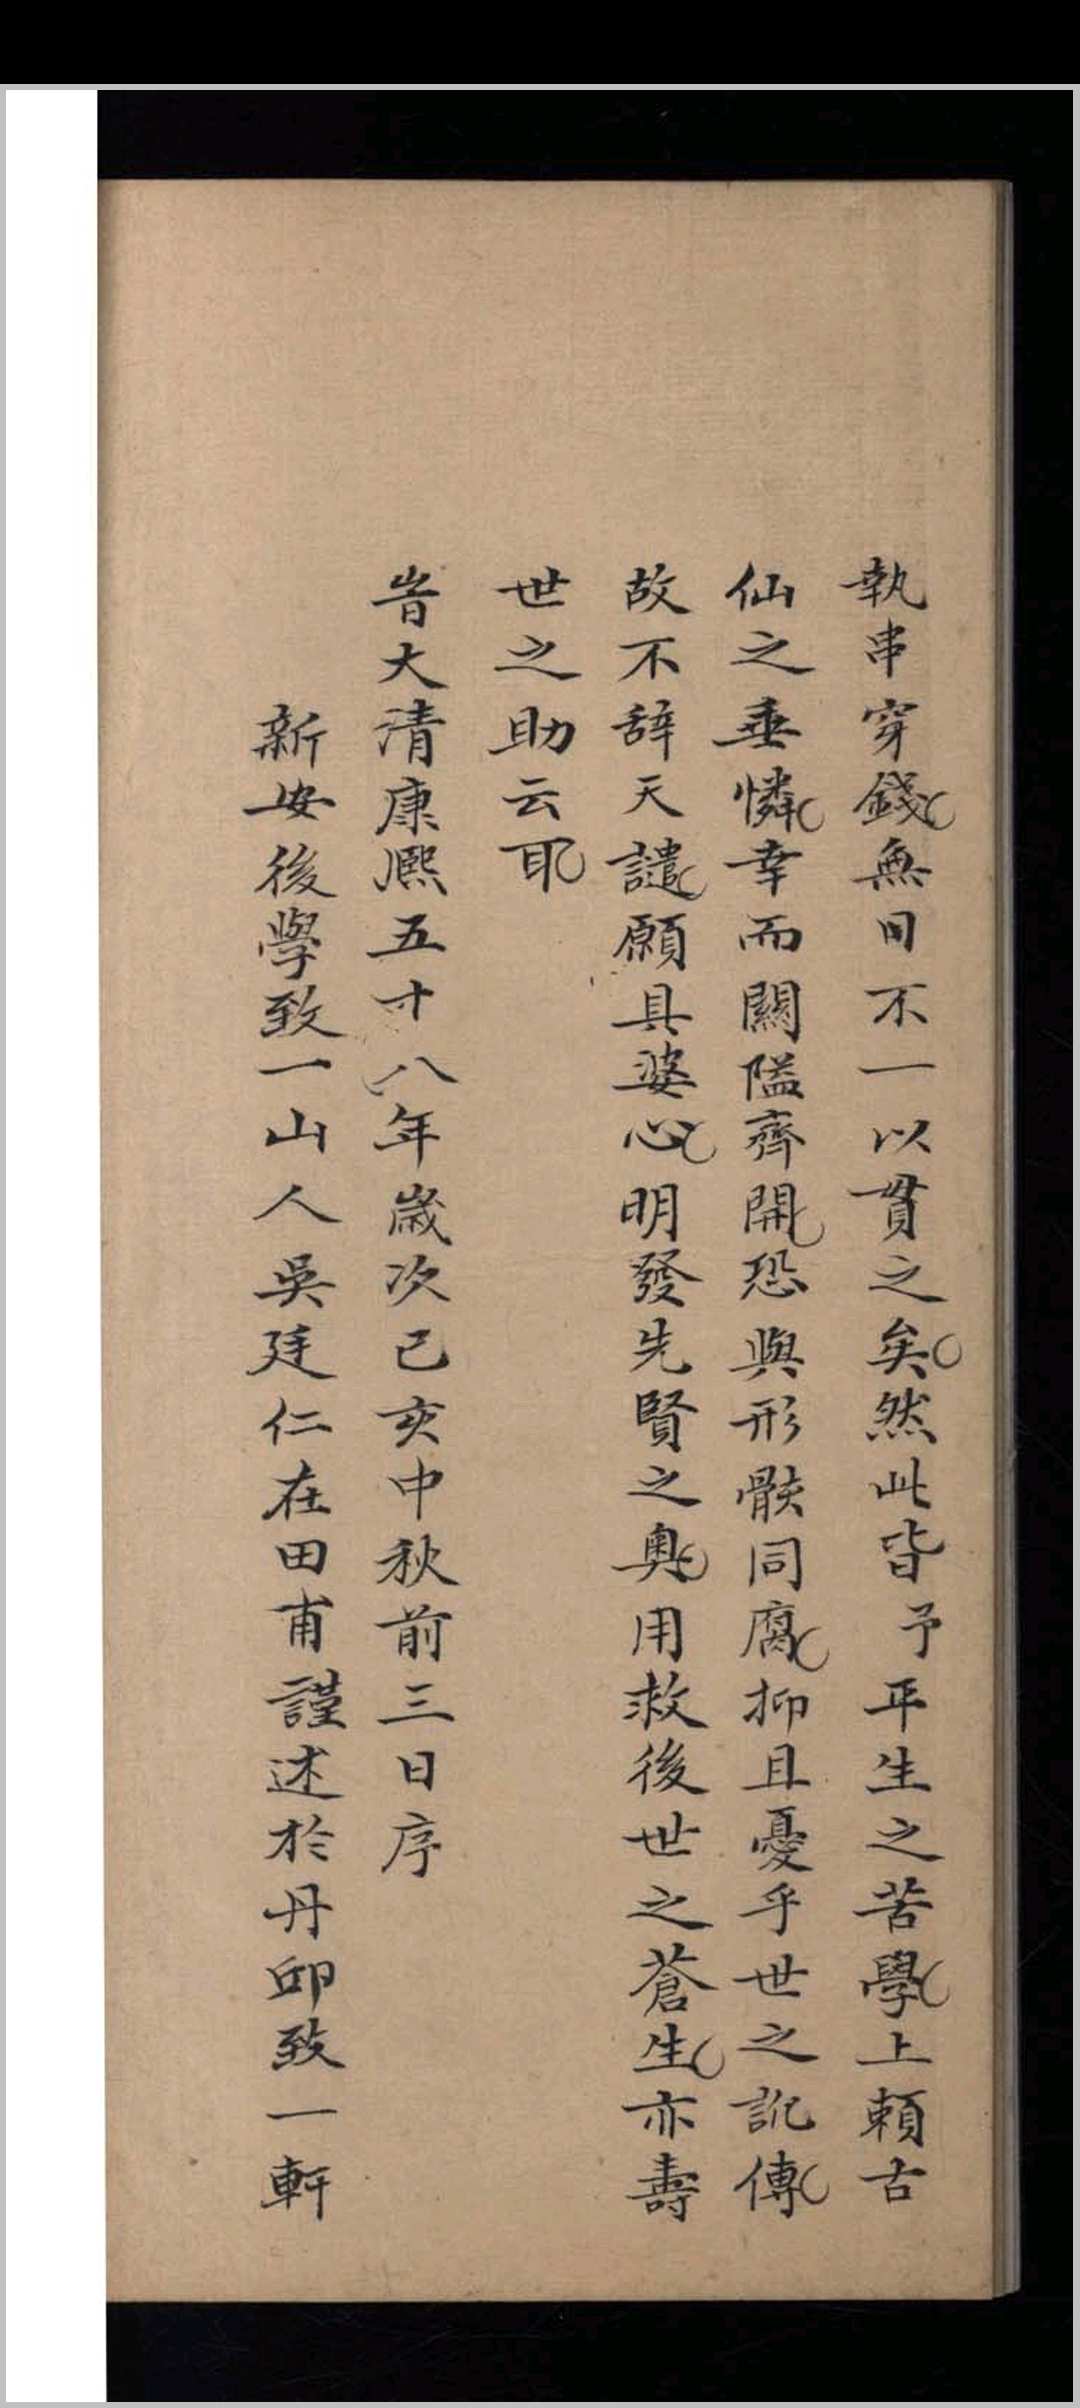 執串穿錢無日不一以貫之矣然此皆予平生之苦學上賴古
仙之垂憐幸而關隘齊開恐與形骸同腐抑且憂乎世之訛傳
故不辞天譴願具婆心明發先賢之奧用救後世之蒼生亦壽
世之助云耶
旹大清康熈五十八年歲次己亥中秋前三日序
新安後學致一山人吳廷仁在田甫謹述於丹邱致一軒